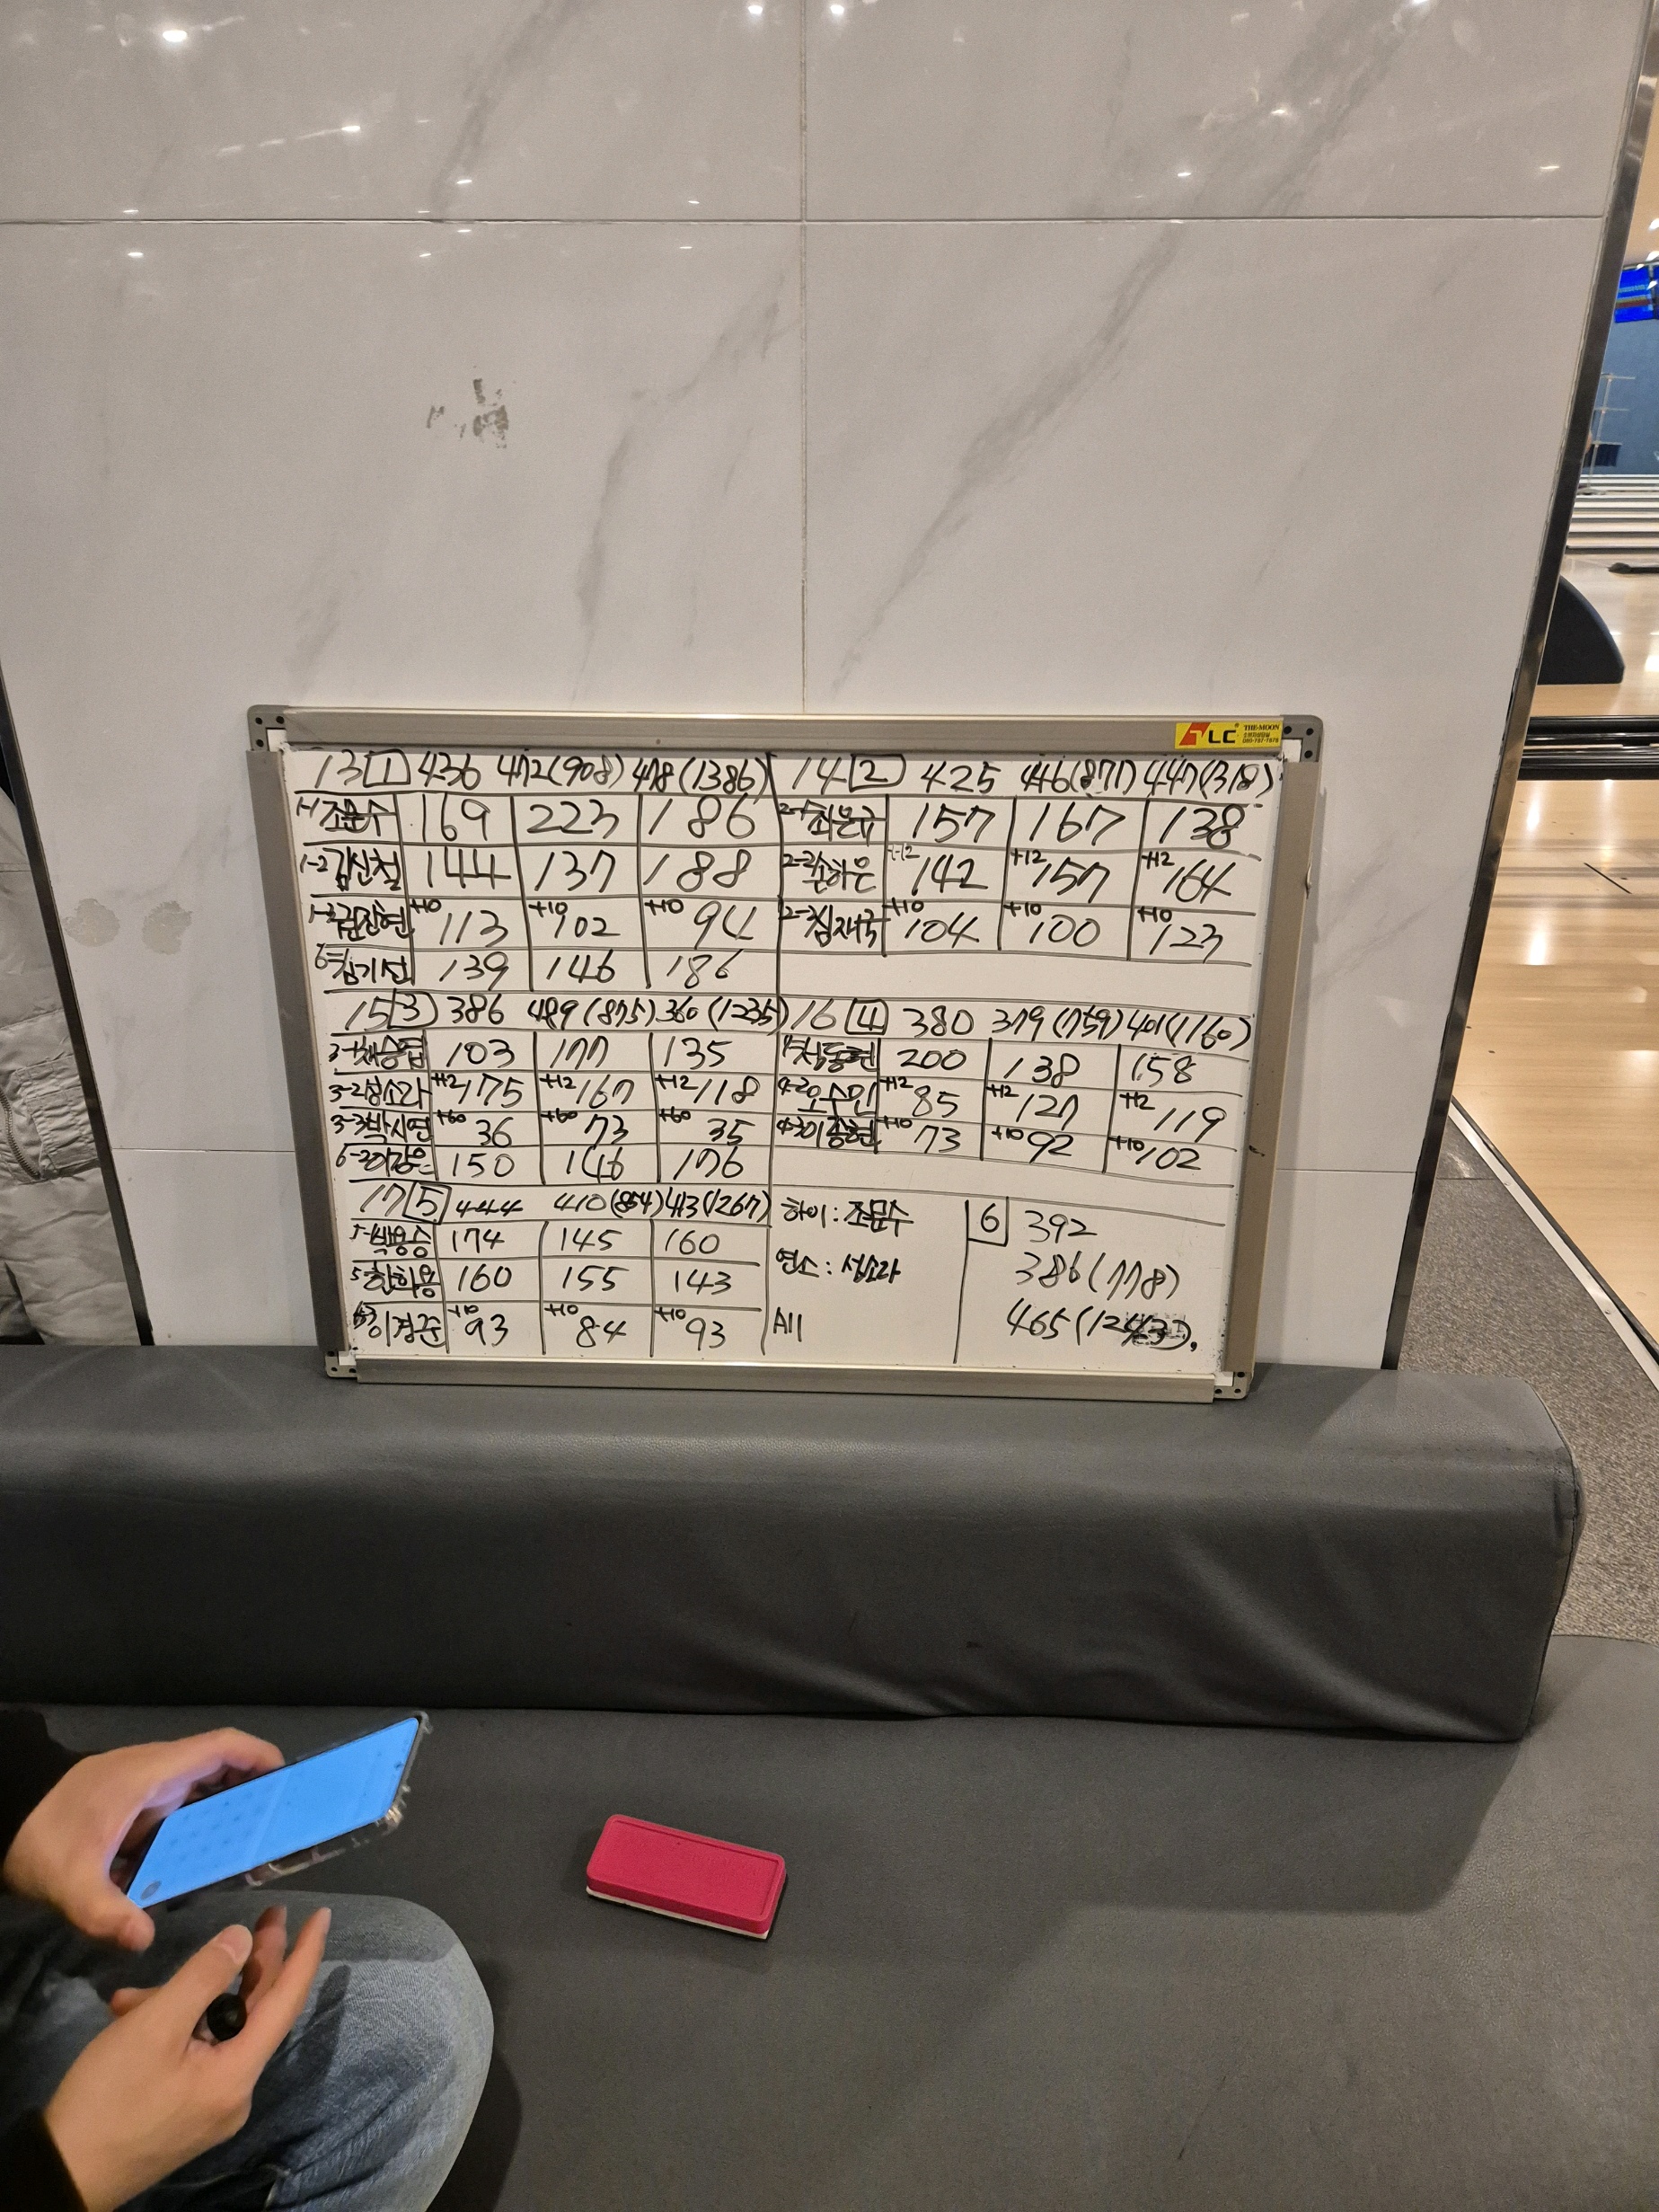 LC THE-MOON
13 1 436 472(908) 478(1386)
1-1 조문수 169 223 186
1-2 김신철 144 137 188
1-3 권진현 +10 113 +10 102 +10 94
김기선 139 146 186
14 2 425 446(871) 447(1318)
2-1 최문규 157 167 138
2-2 손하은 +12 142 +12 157 +12 164
2-3 +10 104 +10 100 +10 123
15 3 386 489(875) 360(1235)
3-1 채승협 103 177 135
3-2 성소라 +12 175 +12 167 +12 118
3-3 박시연 +60 36 +60 73 +60 35
6-2 150 146 176
16 4 380 379(759) 401(1160)
200 138 158
4-2 오수민 +12 85 +12 127 +12 119
4-3 +10 73 +10 92 +10 102
17 5 444 410(854) 413(1267)
5-1 백용승 174 145 160
160 155 143
이경준 +10 93 +10 84 +10 93
하이 : 조문수
연소 : 성소라
All
6 392
386(778)
465(1243).